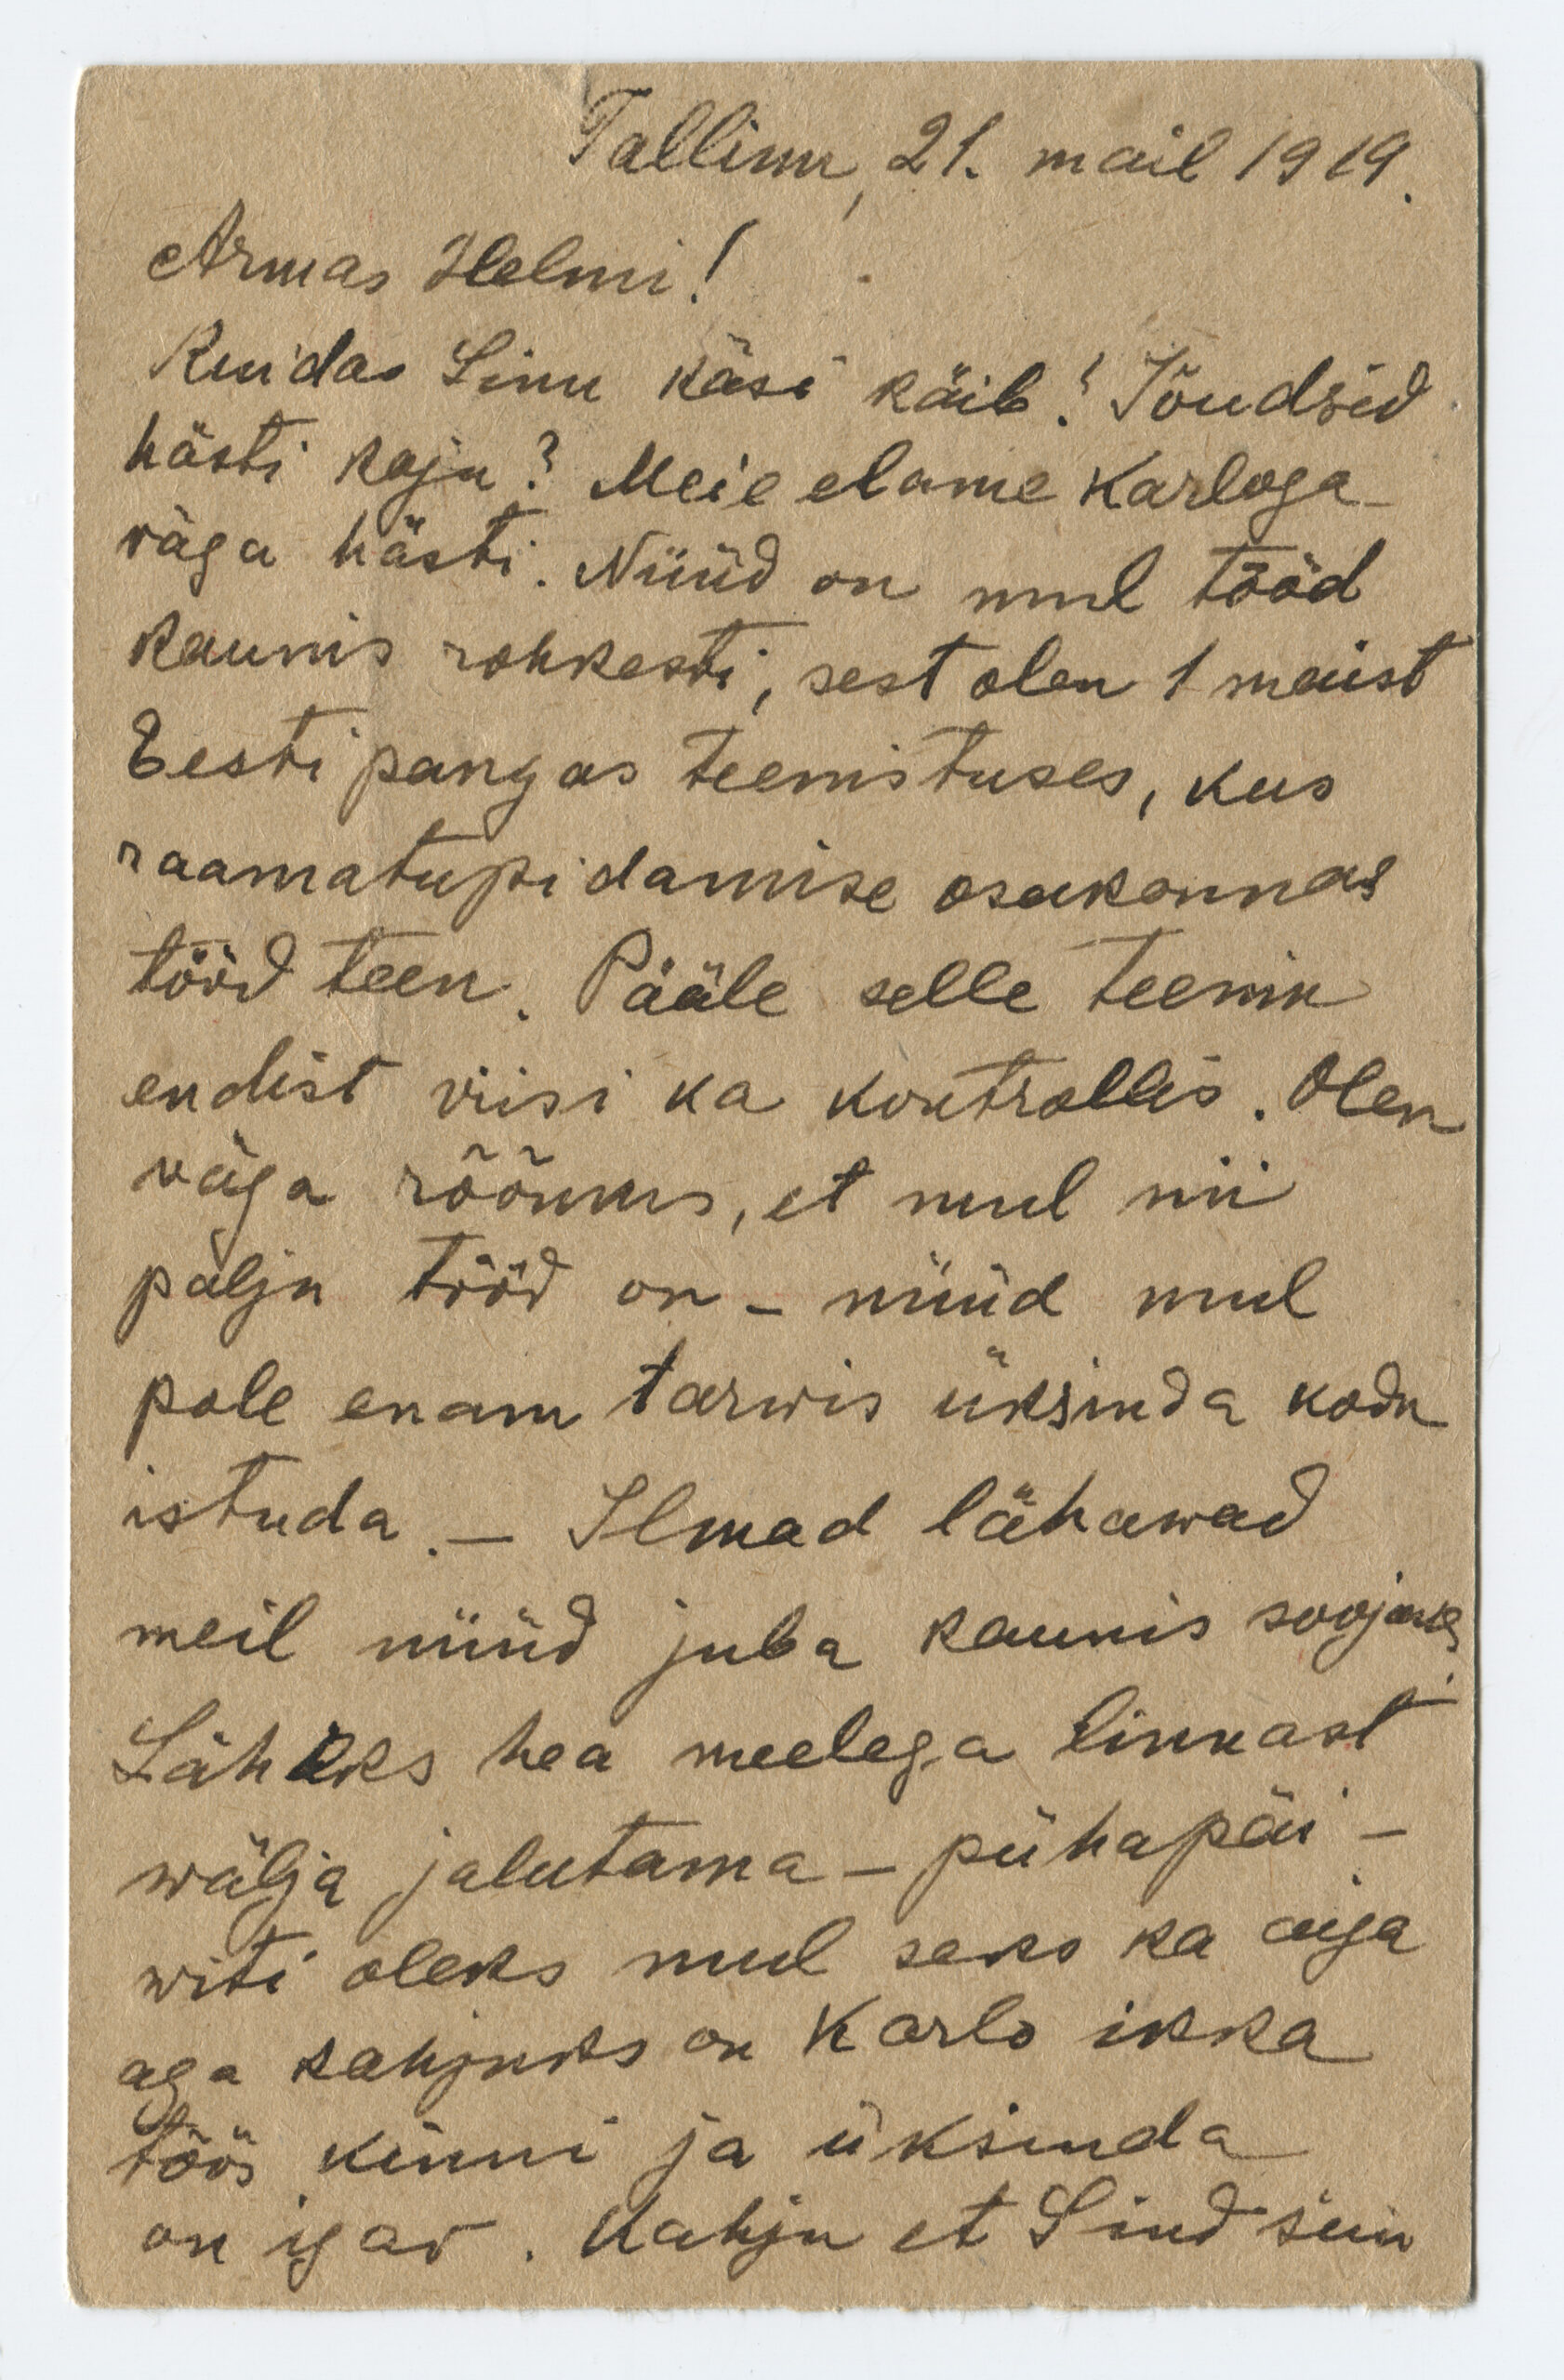 Tallinn, 21. mail 1919.
Armas Helmi!
Kuidas Sinu käsi käib? Jõudsid
hästi koju? Meie elame Karloga
väga hästi. Nüüd on mul tööd
kaunis rohkesti, sest olen 1 maist
Eesti pangas teenistuses, kus
raamatupidamise osakonnas
tööd teen. Pääle selle teenin
endist viisi ka kontrollis. Olen
väga rõõmus, et mul nii
palju tööd on – nüüd mul
pole enam tarwis üksinda kodu
istuda. – Ilmad lähawad
meil nüüd juba kaunis soojaks.
Läheks hea meelega linnast
wälja jalutama – pühapäi-
witi oleks mul seks ka aiga
aga kahjuks on Karlo ikka
töös kinni ja üksinda
on igav. Kahju et Sind siin